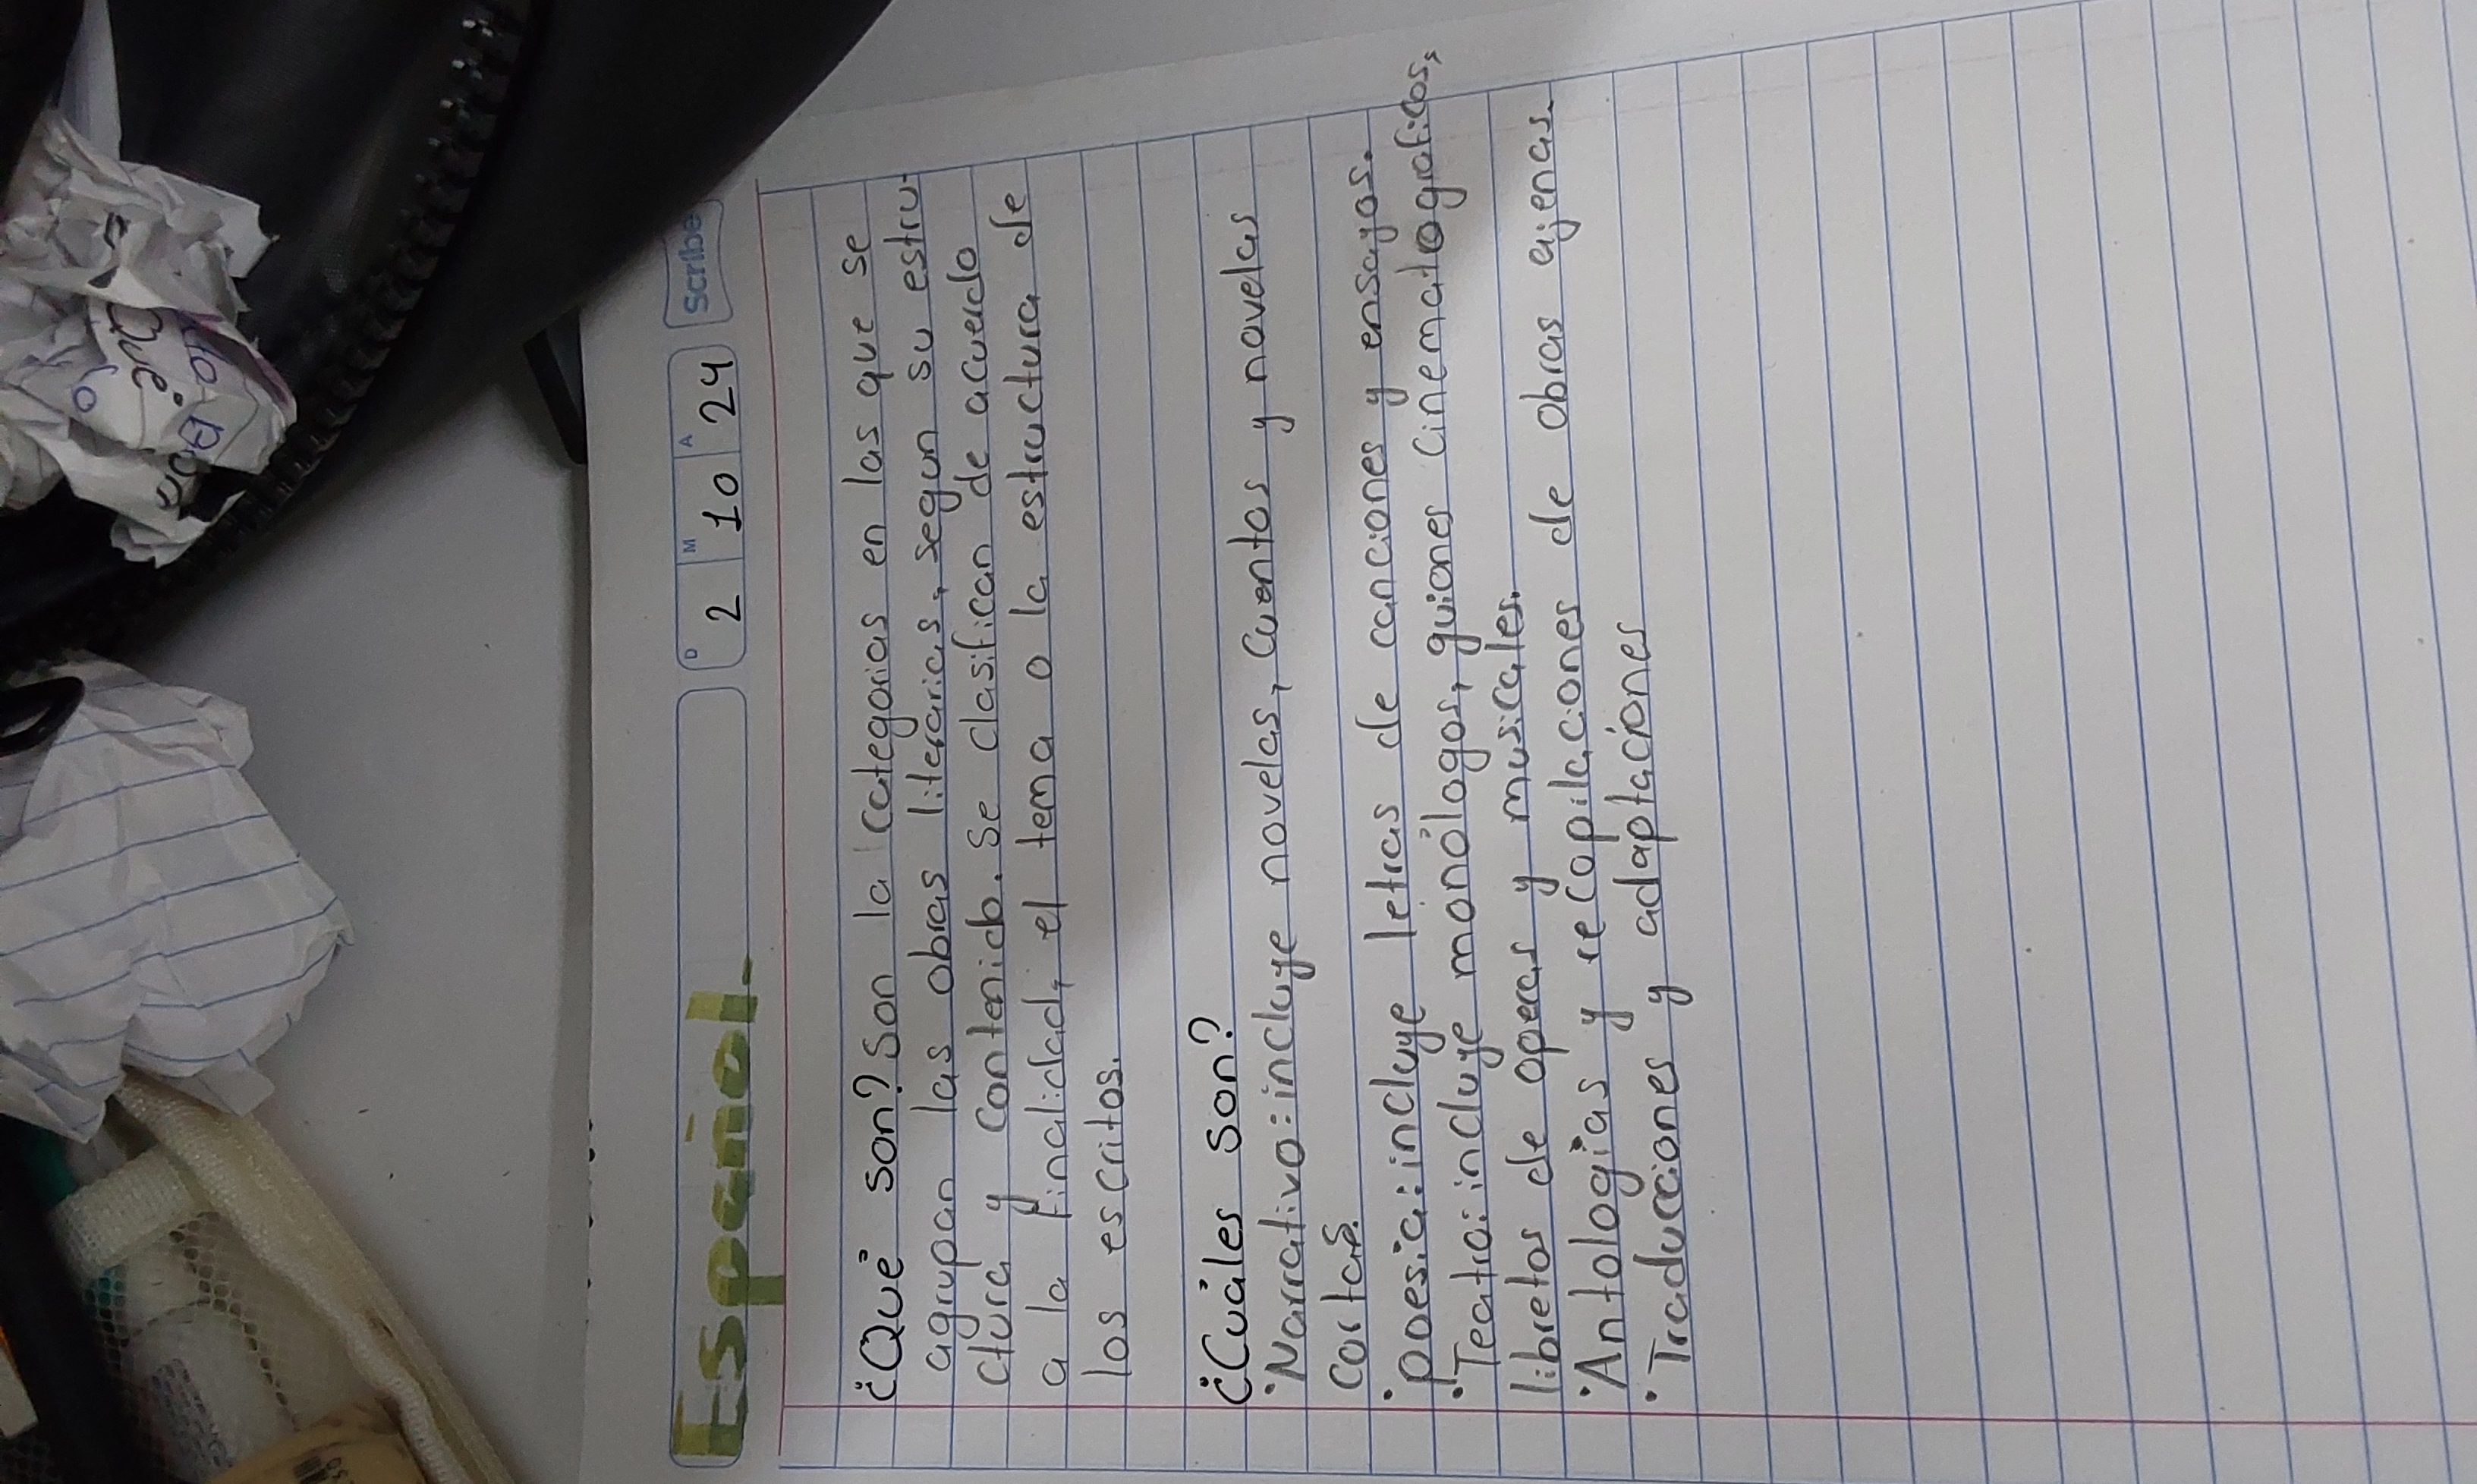 Español.
D M A
2 10 24
Scribe
¿Qué son? Son la categorias en las que se
agrupan las obras literarias, segun su estru-
ctura y contenido. Se clasifican de acuerdo
a la finalidad, el tema o la estructura de
los escritos.
¿Cuáles son?
• Narrativo: incluye novelas, cuentos y novelas
cortas.
• poesia: incluye letras de canciones y ensayos.
• Teatro: incluye monólogos, guiones cinematograficos,
libretos de operas y musicales.
• Antologias y recopilaciones de obras ajenas.
• Traducciones y adaptaciones
Qué